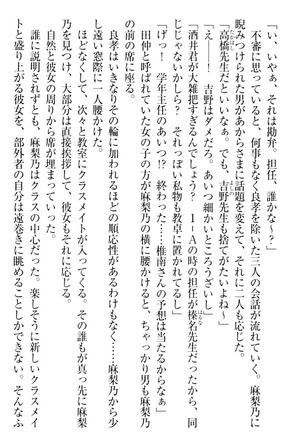 「い、いやぁ、それは勘弁。担任、誰かな〜？」
不審に思っていると、何事もなく良孝を除いた三人の会話が流れていく。麻梨乃に
睨みつけられた男があからさまに話題を変えて、それに二人も応じた。
「高橋先生だといいなぁ。でも、吉野先生も捨てがたいよね〜」
「え――！　吉野はダメだろ。あいつ細かいところうざいし」
「酒井君が大雑把すぎるんでしょう？　1－Aの時の担任が榛名先生だったから、同
じじゃないかしら？　それっぽい私物も教卓に置かれてるし」
「げっ！　学年主任のあいつ!?　終わった……椎南さんの予想は当たるからなぁ」
田仲と呼ばれていた女の子の方が麻梨乃の横に腰かけると、ちゃっかり男も麻梨乃
の前の席に座る。
良孝はいきなりその輪に加われるほどの順応性があるわけもなく、麻梨乃から少
し遠い窓際に一人腰かけた。
ほどなくして、次々と教室にクラスメイトが入ってくる。その誰もが真っ先に麻梨
乃を見つけ、大部分は直接挨拶して、彼女もそれに応じる。
自然と彼女の周りから席が埋まっていった。
誰に説明されずとも、麻梨乃はクラスの中心だった。楽しそうに新しいクラスメイ
トと盛り上がる彼女を、部外者の自分は遠巻きに眺めることしかできない。そんなふ